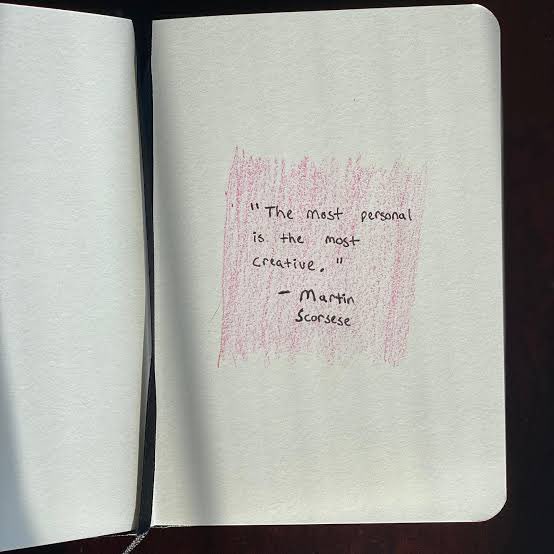 "The most personal
is the most
creative."
- Martin
Scorsese